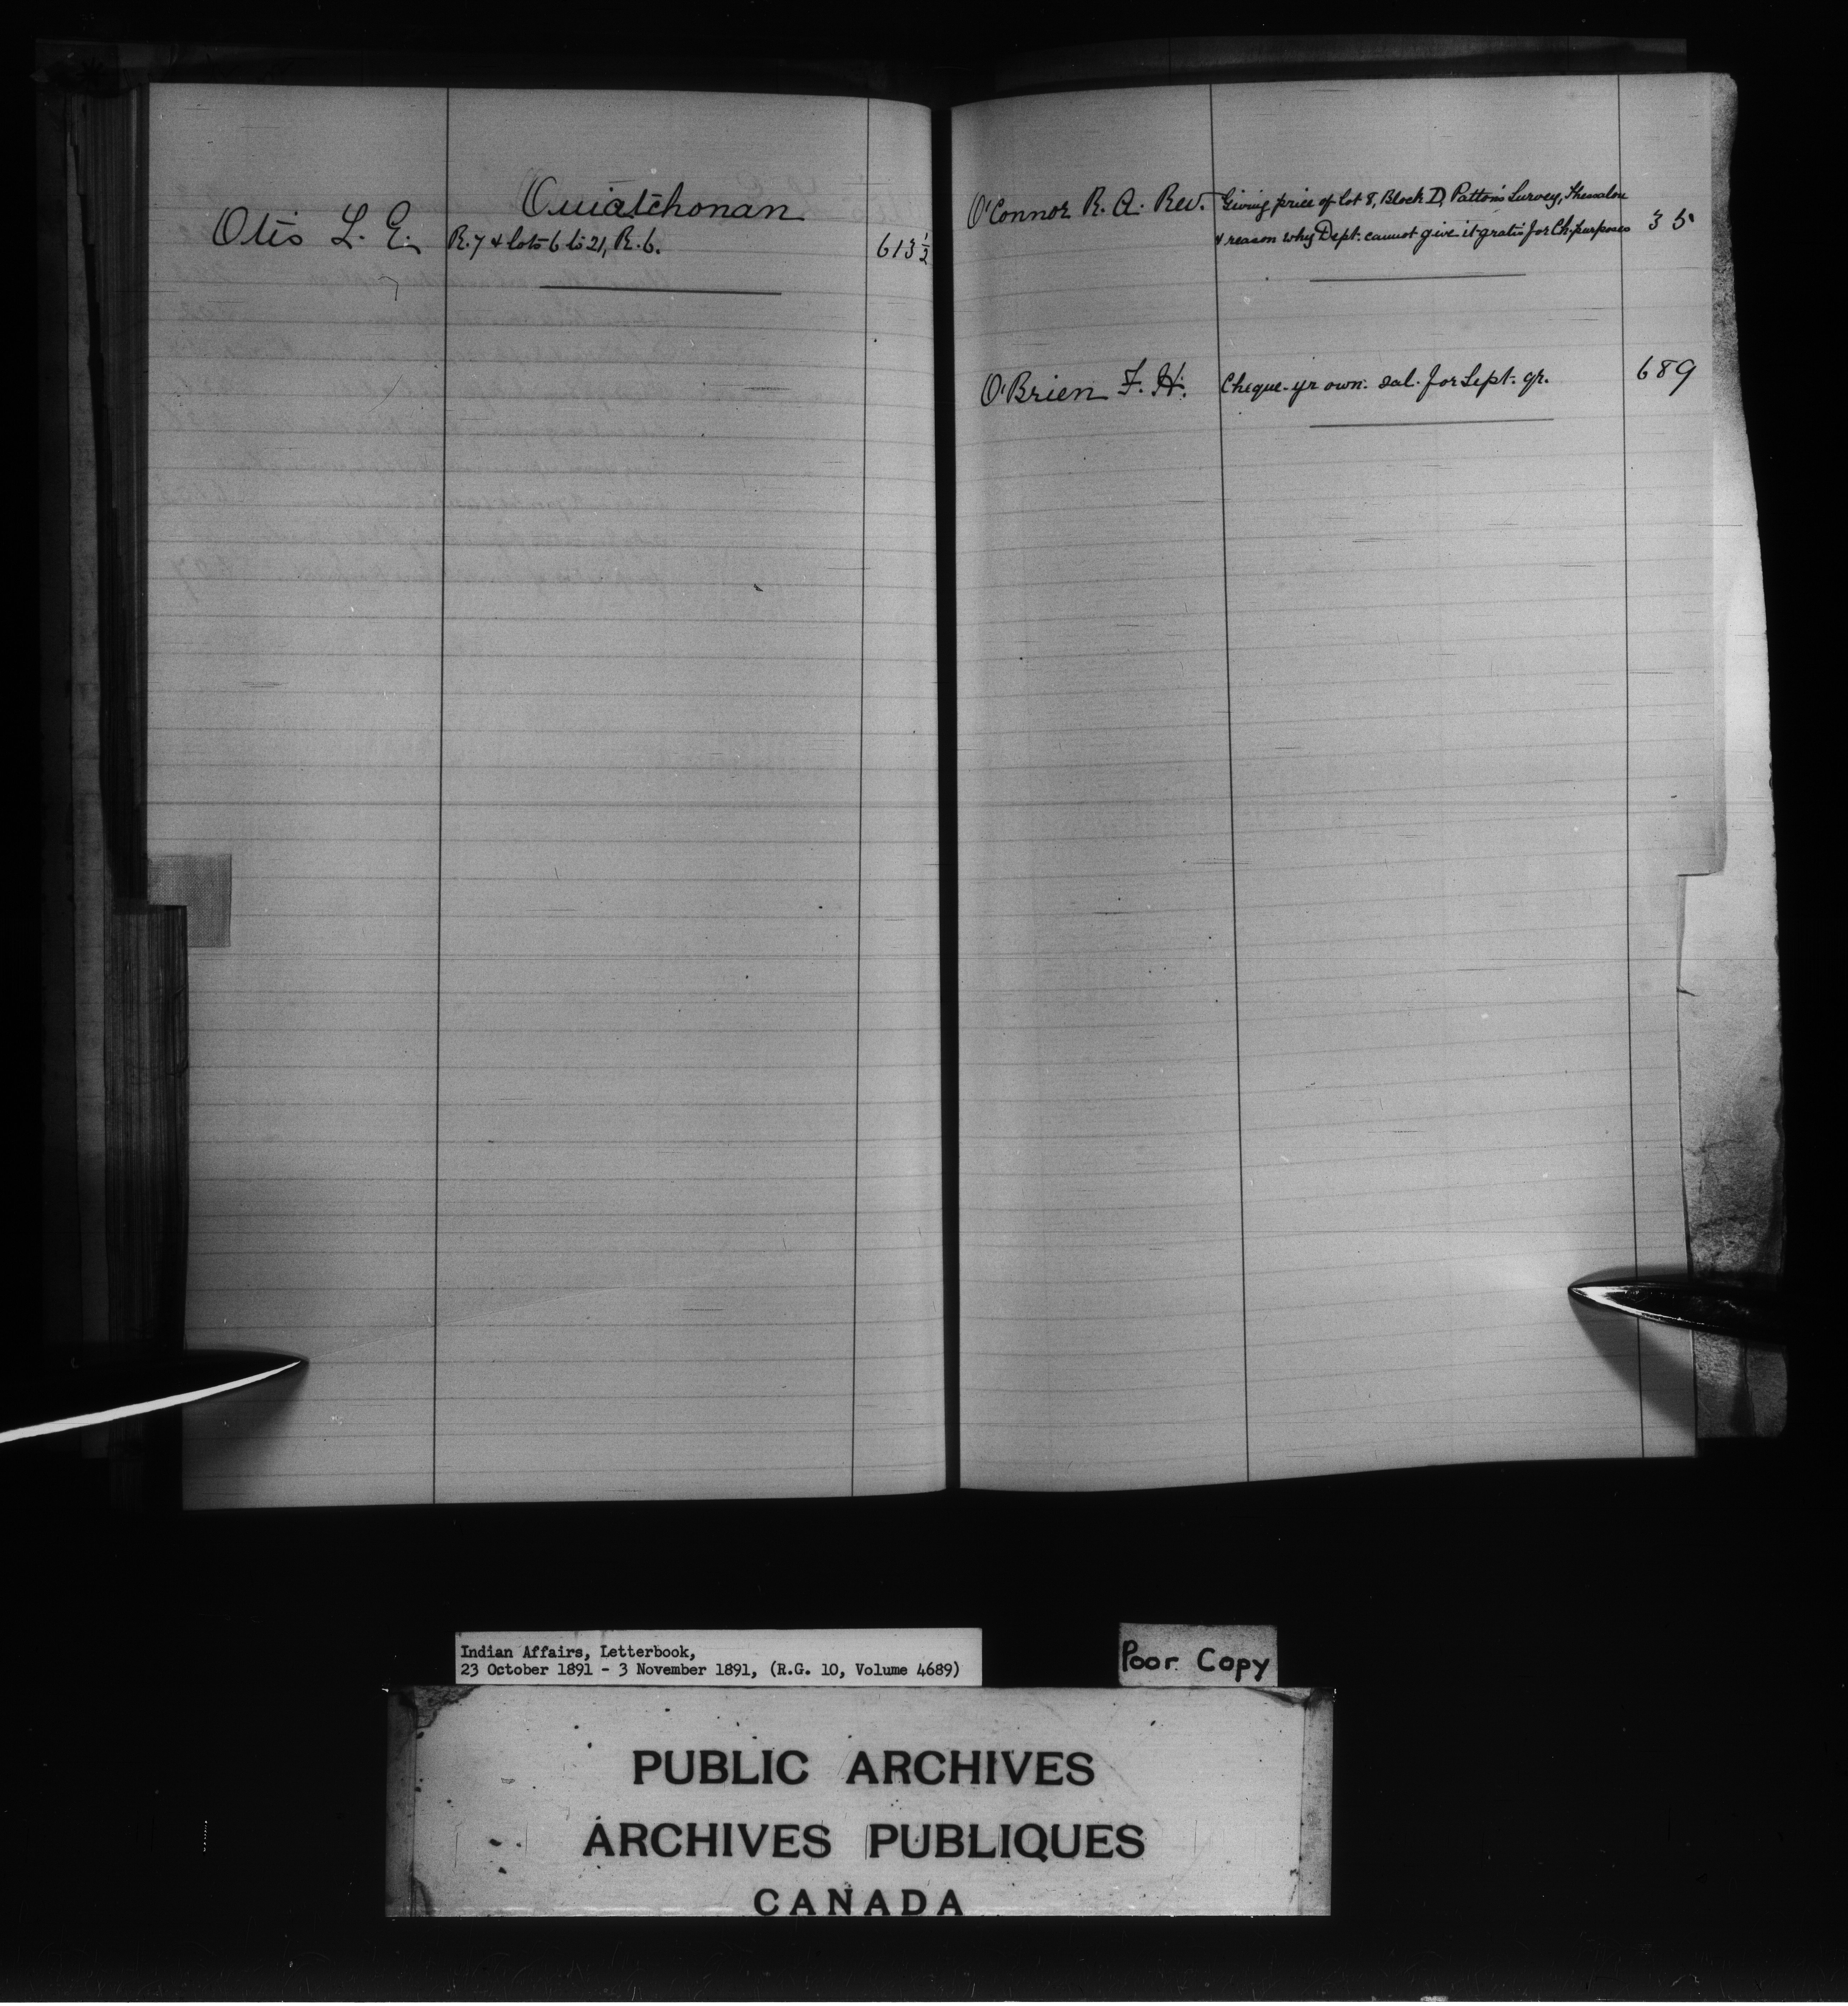 Ouiatchonan
Otis L. E. R. 7 & lots 6 to 21, R. 6. 613 1/2
O'Connor R. A. Rev. Giving price of lot 8, Block D, Patton's Survey, Thessalon
& reason why Dept. cannot give it gratis for Ch. purposes 35
O'Brien F. H. Cheque - yr own. sal. for Sept. qr. 689
Indian Affairs, Letterbook,
23 October 1891 - 3 November 1891, (R.G. 10, Volume 4689)
Poor Copy
PUBLIC ARCHIVES
ARCHIVES PUBLIQUES
CANADA